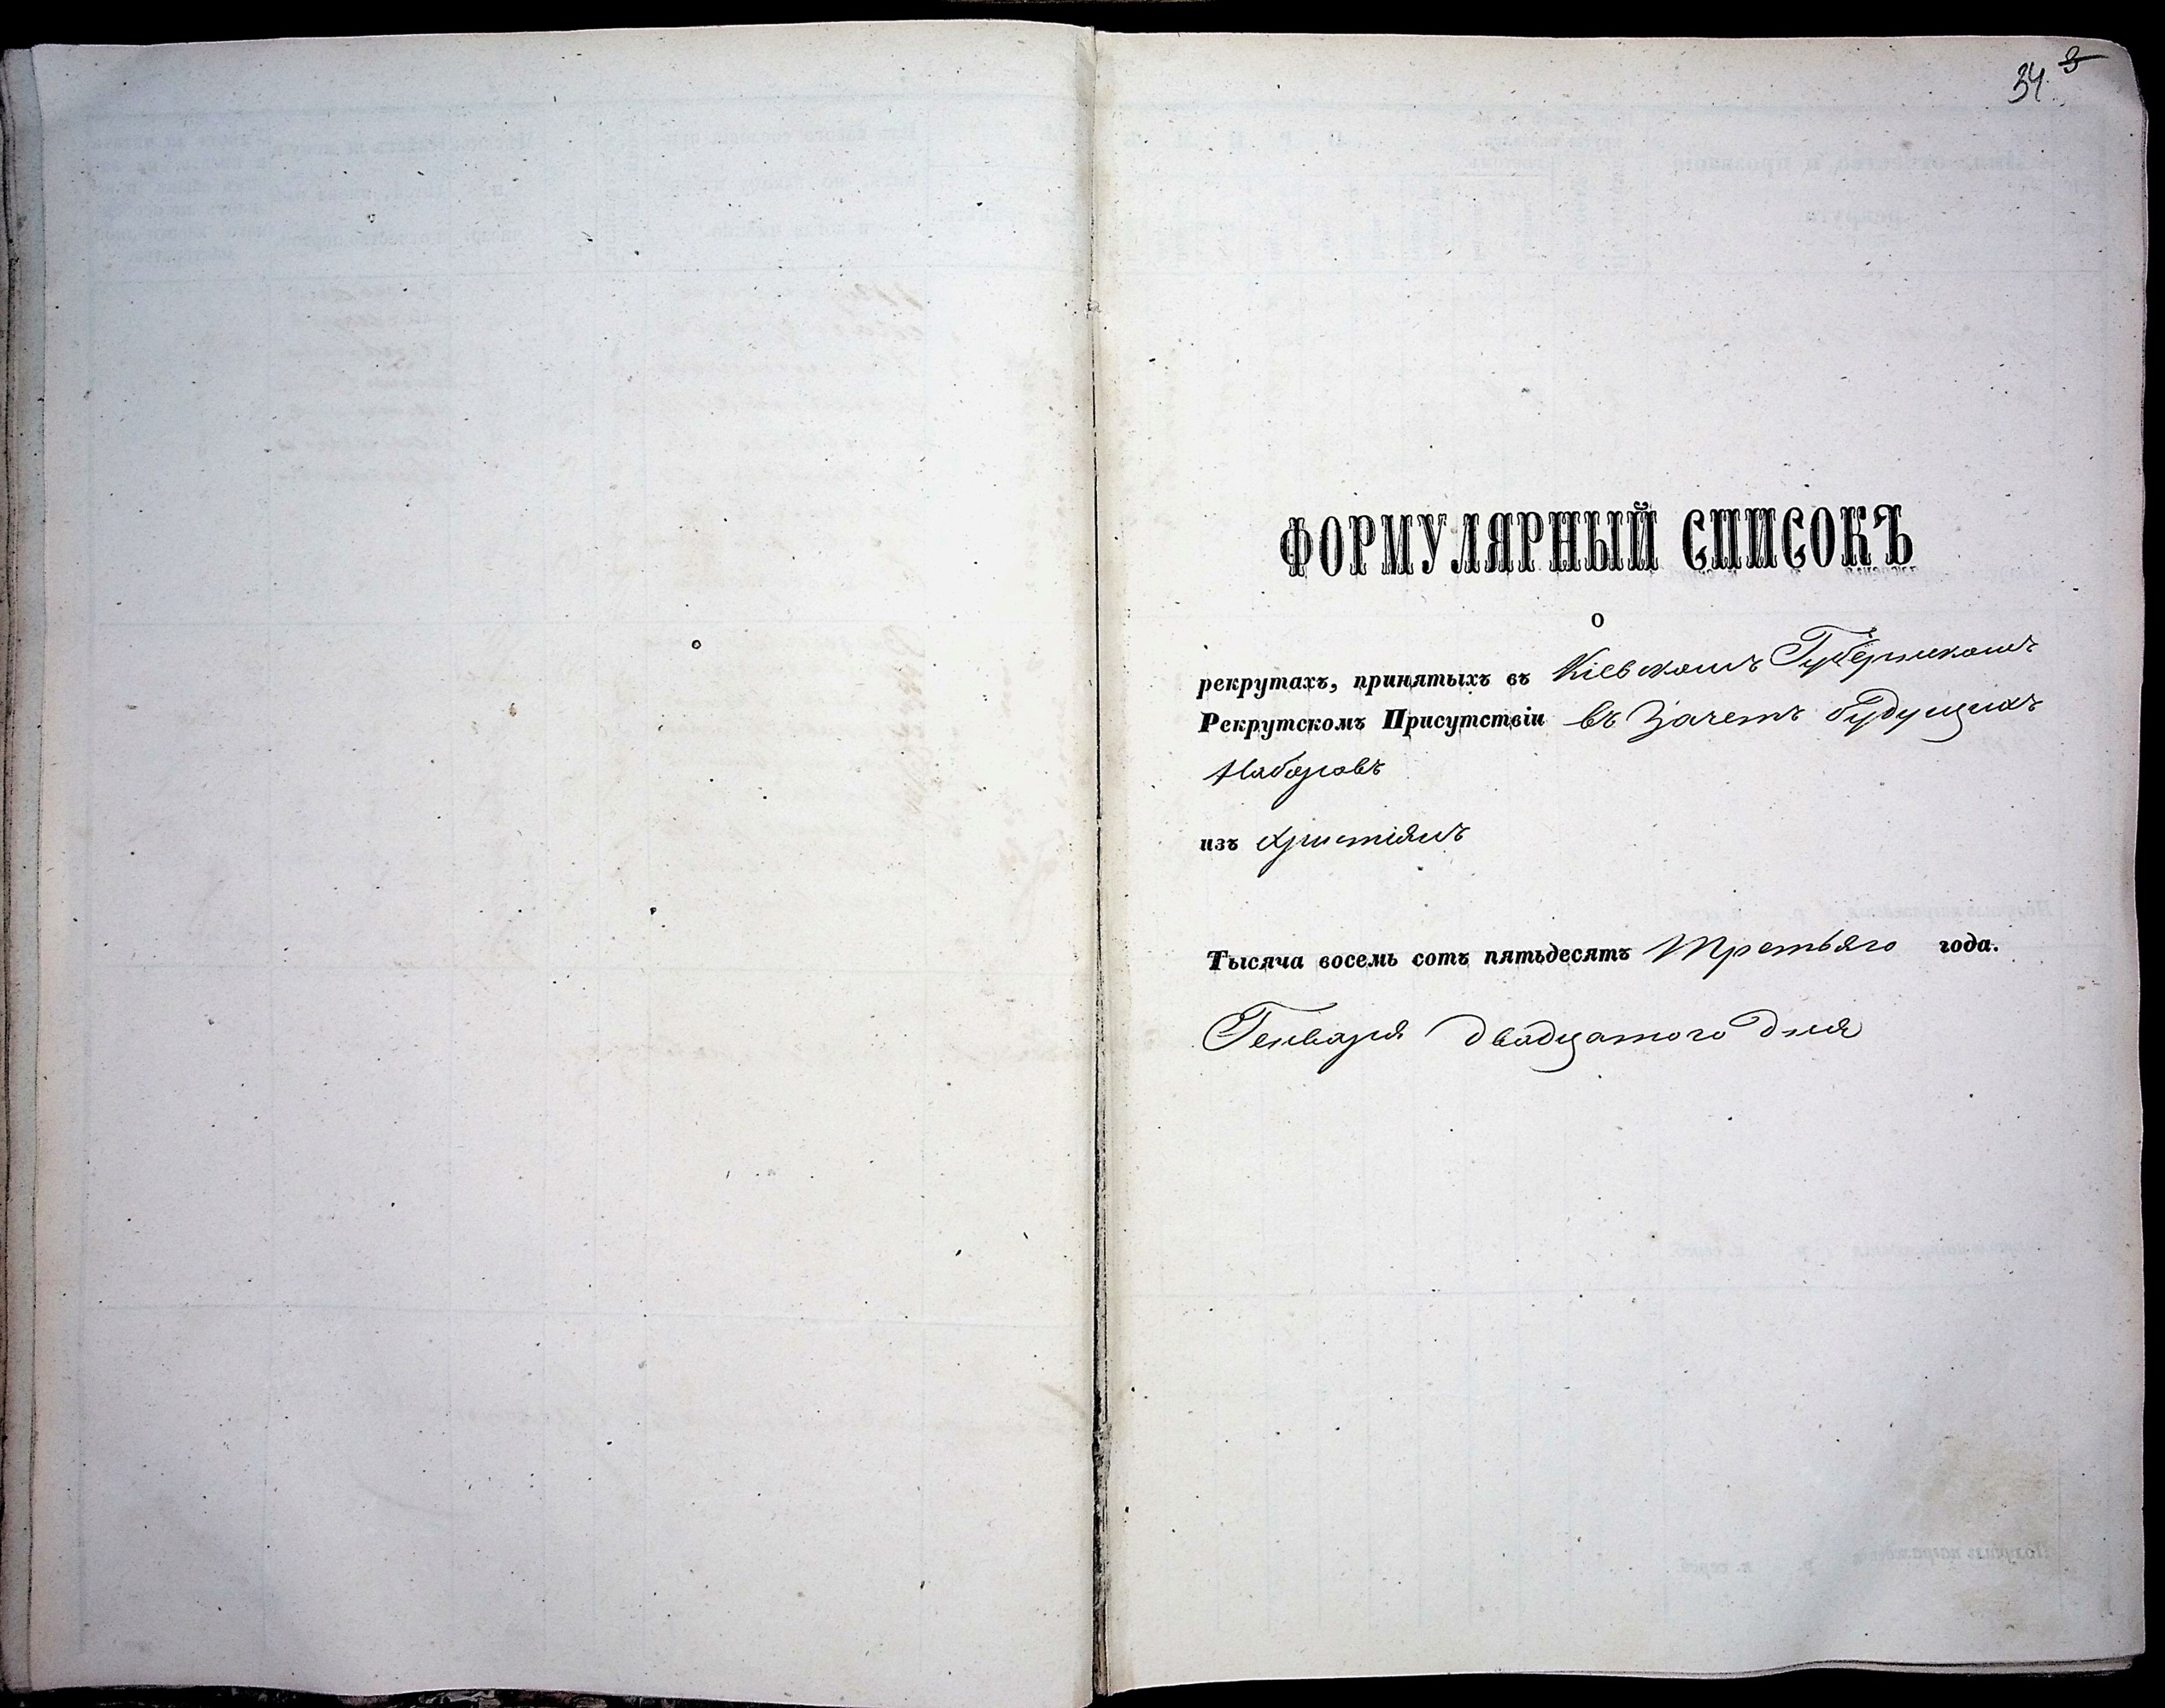 34 3
ФОРМУЛЯРНЫЙ СПИСОКЪ
о
рекрутахъ, принятыхъ въ Кіевскомъ Губернскомъ
Рекрутскомъ Присутствіи въ Зачетъ будущихъ
Наборовъ
изъ христіянъ
Тысяча восемь сотъ пятьдесятъ третьяго года.
Генваря двадцатого дня